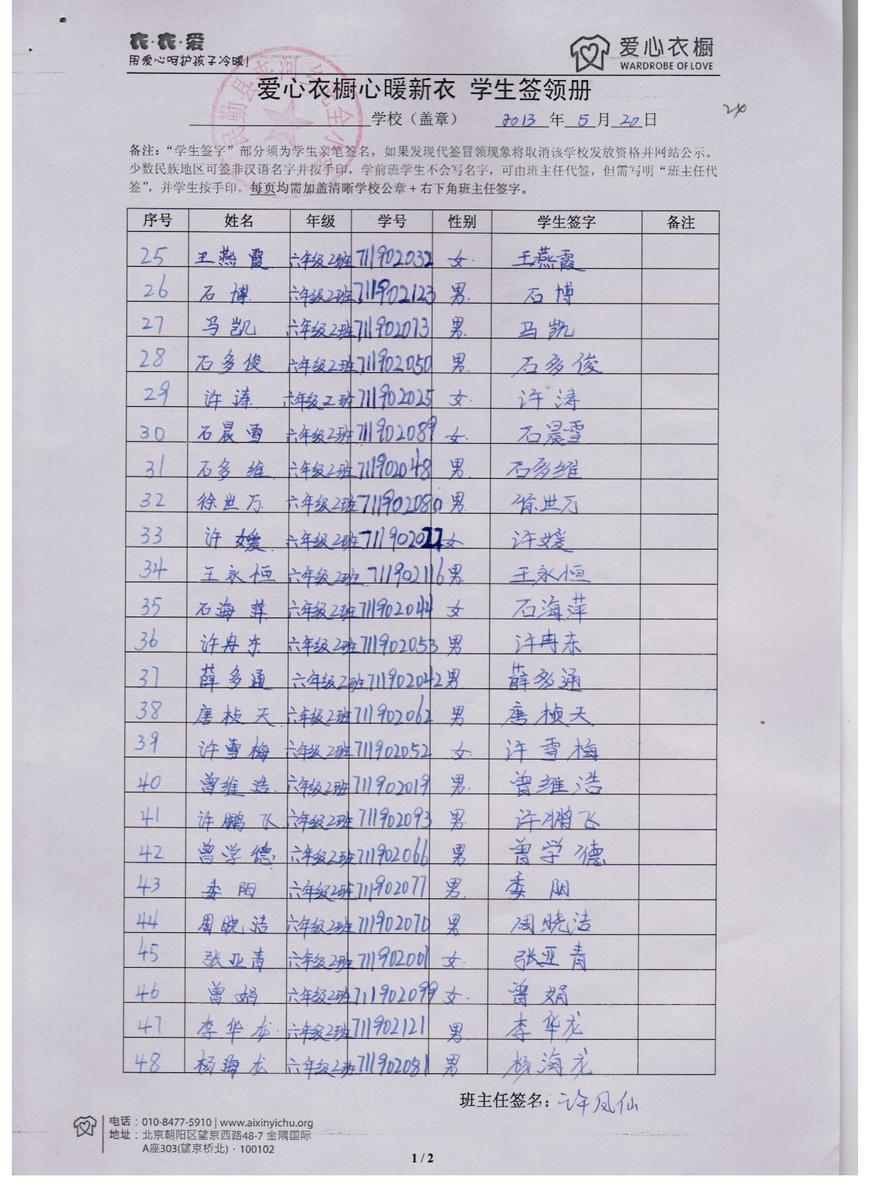 衣·衣·爱
用爱心呵护孩子冷暖!
爱心衣橱
WARDROBE OF LOVE
爱心衣橱心暖新衣 学生签领册
学校（盖章） 2013 年 5 月 20 日
24
备注："学生签字"部分须为学生亲笔签名，如果发现代签冒领现象将取消该学校发放资格并网站公示。
少数民族地区可签非汉语名字并按手印，学前班学生不会写名字，可由班主任代签，但需写明"班主任代
签"，并学生按手印。每页均需加盖清晰学校公章+右下角班主任签字。
序号 姓名 年级 学号 性别 学生签字 备注
25 王燕霞 六年级2班 711902032 女 王燕霞
26 石博 六年级2班 711902123 男 石博
27 马凯 六年级2班 711902073 男 马凯
28 石多俊 六年级2班 711902050 男 石多俊
29 许涛 六年级2班 711902025 女 许涛
30 石晨雪 六年级2班 711902089 女 石晨雪
31 石多维 六年级2班 711902048 男 石多维
32 徐世万 六年级2班 711902080 男 徐世万
33 许媛 六年级2班 711902027 女 许媛
34 王永恒 六年级2班 711902116 男 王永恒
35 石海萍 六年级2班 711902044 女 石海萍
36 许冉东 六年级2班 711902053 男 许冉东
37 薛多通 六年级2班 711902042 男 薛多通
38 唐桢天 六年级2班 711902062 男 唐桢天
39 许雪梅 六年级2班 711902052 女 许雪梅
40 曾维浩 六年级2班 711902019 男 曾维浩
41 许鹏飞 六年级2班 711902093 男 许鹏飞
42 曾学德 六年级2班 711902066 男 曾学德
43 委阳 六年级2班 711902077 男 委阳
44 周晓洁 六年级2班 711902070 男 周晓洁
45 张亚青 六年级2班 711902001 女 张亚青
46 曾娟 六年级2班 711902099 女 曾娟
47 李华龙 六年级2班 711902121 男 李华龙
48 杨海龙 六年级2班 711902081 男 杨海龙
班主任签名：许凤仙
电话：010-8477-5910 | www.aixinyichu.org
地址：北京朝阳区望京西路48-7 金隅国际
A座303(望京桥北)·100102
1 / 2